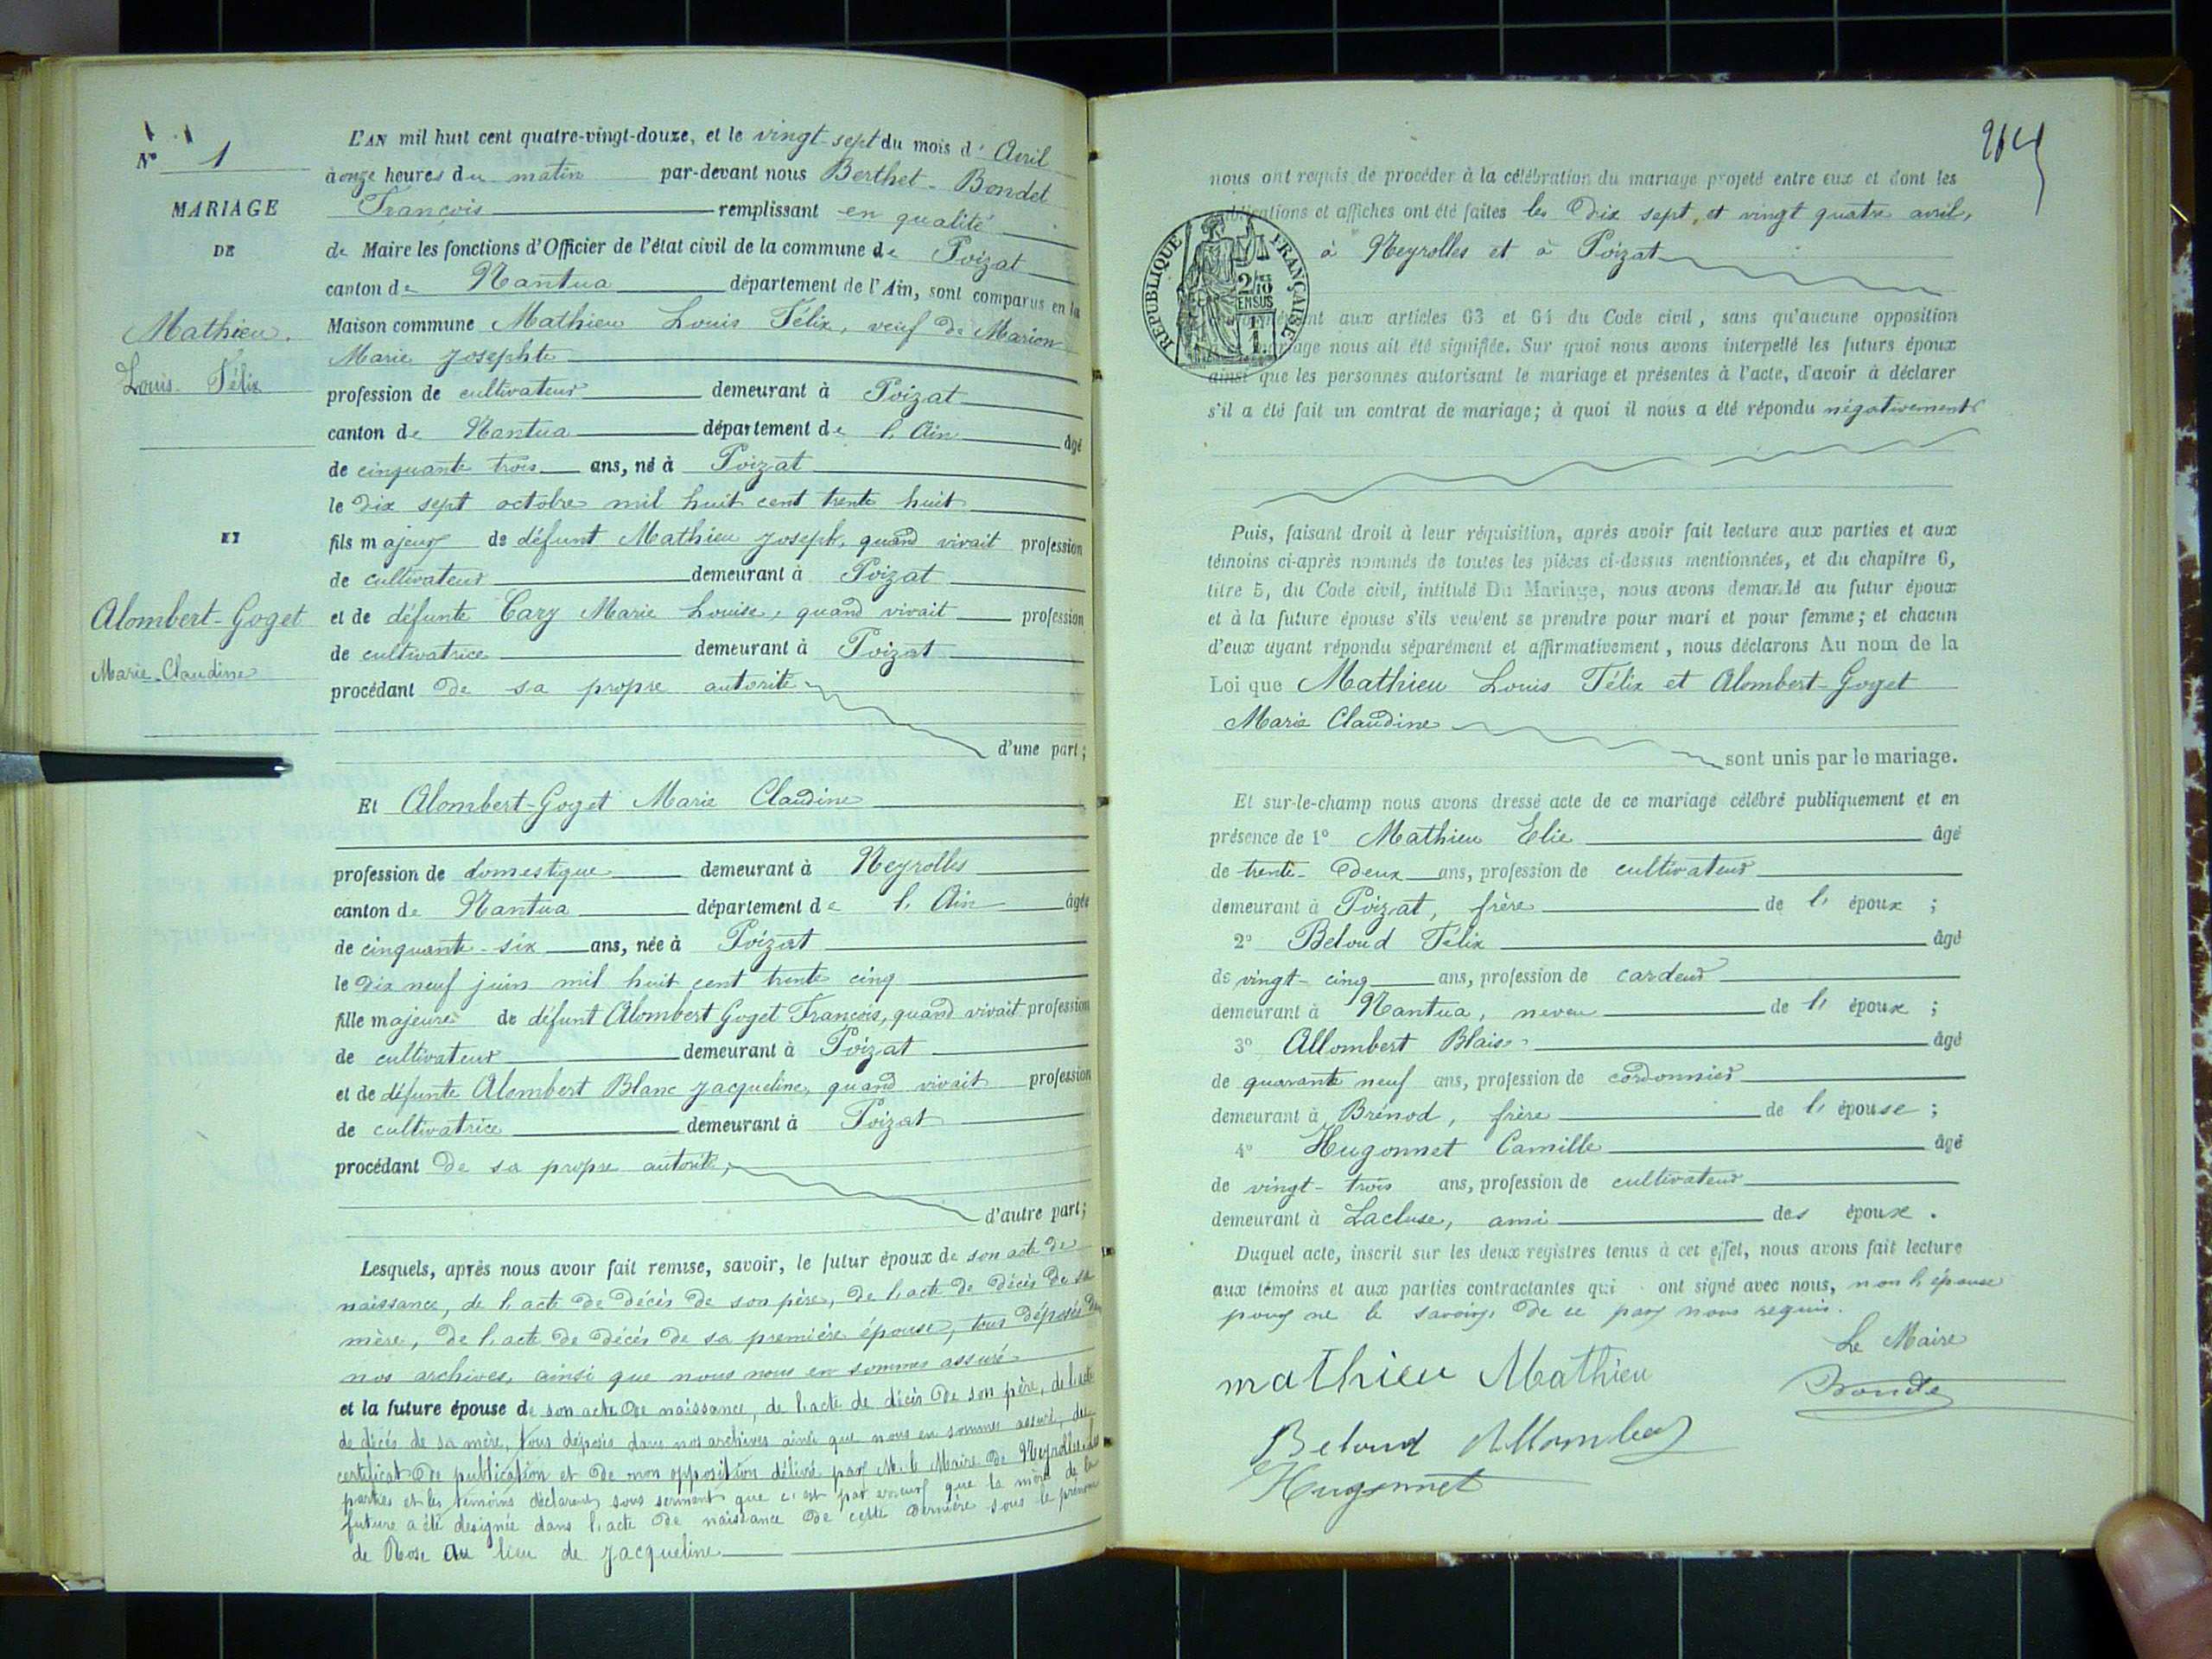 N° 1
MARIAGE
DE
Mathieu.
Louis Félix
ET
Alombert-Goget
Marie Claudine
L'AN mil huit cent quatre-vingt-douze, et le vingt-sept du mois d' Avril
à onze heures du matin par-devant nous Berthet-Bondet
François remplissant en qualité
de Maire les fonctions d'Officier de l'état civil de la commune de Poizat
canton de Nantua département de l'Ain, sont comparus en la
Maison commune Mathieu Louis Félix, veuf de Marion
Marie Josephte
profession de cultivateur demeurant à Poizat
canton de Nantua département de l'Ain âgé
de cinquante trois ans, né à Poizat
le dix sept octobre mil huit cent trente huit
fils majeur de défunt Mathieu Joseph, quand vivait profession
de cultivateur demeurant à Poizat
et de défunte Cary Marie Louise, quand vivait profession
de cultivatrice demeurant à Poizat
procédant de sa propre autorité
d'une part;
Et Alombert-Goget Marie Claudine
profession de domestique demeurant à Neyrolles
canton de Nantua département de l'Ain âgée
de cinquante-six ans, née à Poizat
le dix neuf juin mil huit cent trente cinq
fille majeure de défunt Alombert Goget François, quand vivait profession
de cultivateur demeurant à Poizat
et de défunte Alombert Blanc Jacqueline, quand vivait profession
de cultivatrice demeurant à Poizat
procédant de sa propre autorité,
d'autre part;
Lesquels, après nous avoir fait remise, savoir, le futur époux de son acte de
naissance, de l'acte de décès de son père, de l'acte de décès de sa
mère, de l'acte de décès de sa première épouse, tous déposés dans
nos archives, ainsi que nous nous en sommes assuré
et la future épouse de son acte de naissance, de l'acte de décès de son père, de l'acte
de décès de sa mère, tous déposés dans nos archives ainsi que nous en sommes assuré, du
certificat de publication et de non opposition délivré par M. le Maire de Neyrolles. Les
parties et les témoins déclarent sous serment que c'est par erreur que la mère de la
future a été désignée dans l'acte de naissance de cette dernière sous le prénom
de Rose au lieu de Jacqueline
264
nous ont requis de procéder à la célébration du mariage projeté entre eux et dont les
publications et affiches ont été faites les dix sept, et vingt quatre avril,
à Neyrolles et à Poizat
REPUBLIQUE FRANÇAISE
2/10 EN SUS
conformément aux articles 63 et 64 du Code civil, sans qu'aucune opposition
mariage nous ait été signifiée. Sur quoi nous avons interpellé les futurs époux
ainsi que les personnes autorisant le mariage et présentes à l'acte, d'avoir à déclarer
s'il a été fait un contrat de mariage; à quoi il nous a été répondu négativement
Puis, faisant droit à leur réquisition, après avoir fait lecture aux parties et aux
témoins ci-après nommés de toutes les pièces ci-dessus mentionnées, et du chapitre 6,
titre 5, du Code civil, intitulé Du Mariage, nous avons demandé au futur époux
et à la future épouse s'ils veulent se prendre pour mari et pour femme; et chacun
d'eux ayant répondu séparément et affirmativement, nous déclarons Au nom de la
Loi que Mathieu Louis Félix et Alombert-Goget
Marie Claudine
sont unis par le mariage.
Et sur-le-champ nous avons dressé acte de ce mariage célébré publiquement et en
présence de 1° Mathieu Elie âgé
de trente-deux ans, profession de cultivateur
demeurant à Poizat, frère de l'époux ;
2° Beloud Félix âgé
de vingt-cinq ans, profession de cardeur
demeurant à Nantua, neveu de l'époux ;
3° Allombert Blaise âgé
de quarante neuf ans, profession de cordonnier
demeurant à Brénod, frère de l'épouse ;
4° Hugonnet Camille âgé
de vingt-trois ans, profession de cultivateur
demeurant à Lacluse, ami des époux.
Duquel acte, inscrit sur les deux registres tenus à cet effet, nous avons fait lecture
aux témoins et aux parties contractantes qui ont signé avec nous, non l'épouse
pour ne le savoir, de ce par nous requis.
Le Maire
mathieu Mathieu
Beloud Allombert
Hugonnet